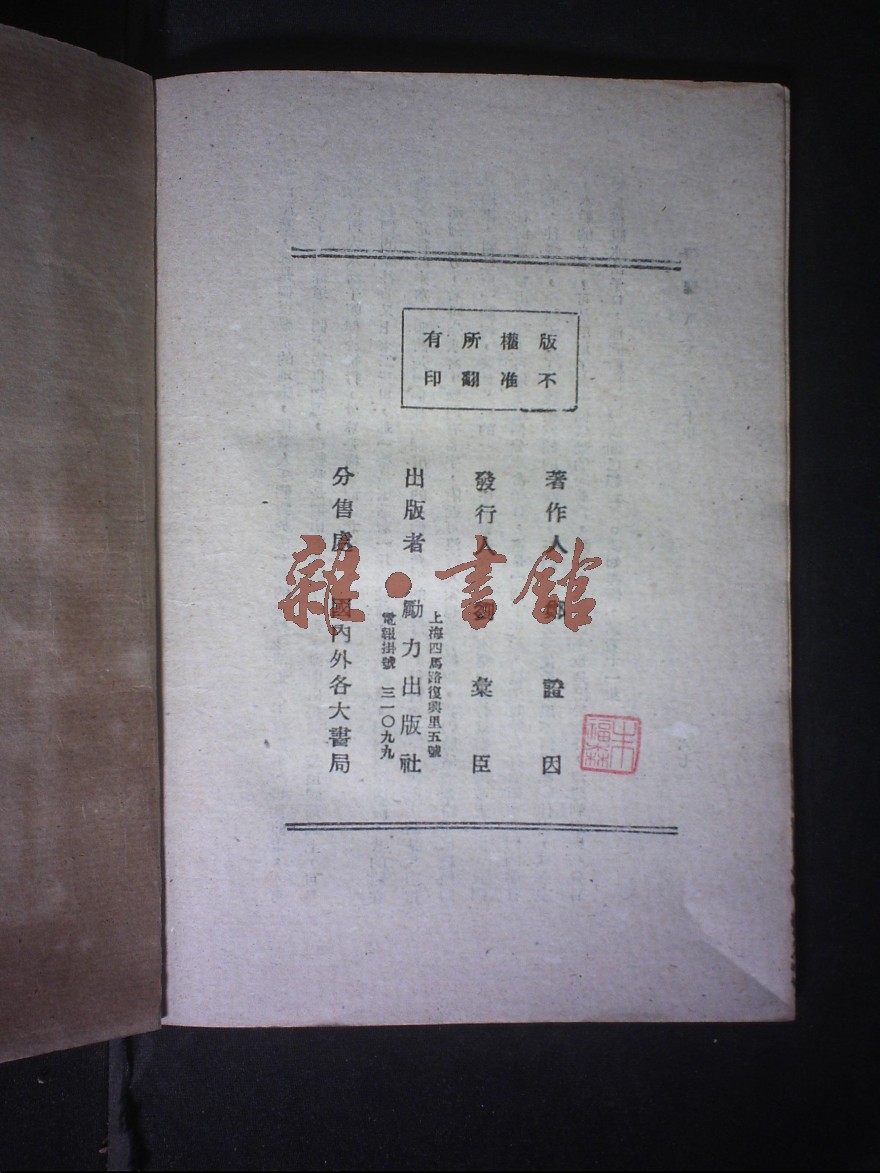 版權所有
不准翻印
著作人 鄭證因
發行人 劉彙臣
出版者 勵力出版社
上海四馬路復興里五號
電報掛號 三一〇九九
分售處 國內外各大書局
朱福森
雜·書館